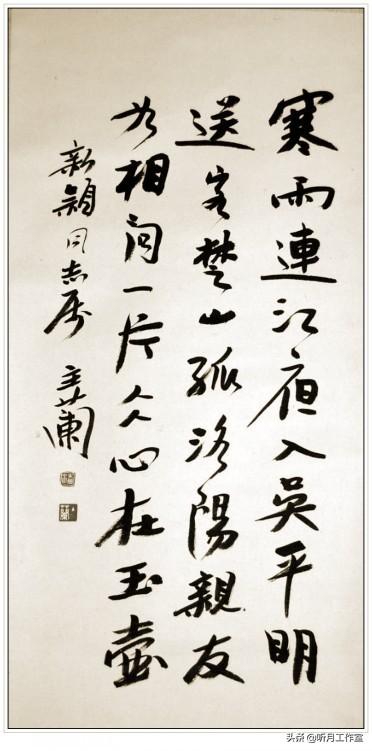 寒雨連江夜入吳平明
送客楚山孤洛陽親友
如相问一片仌心在玉壺
新穎同志属 主蘭
头条 @听月工作室